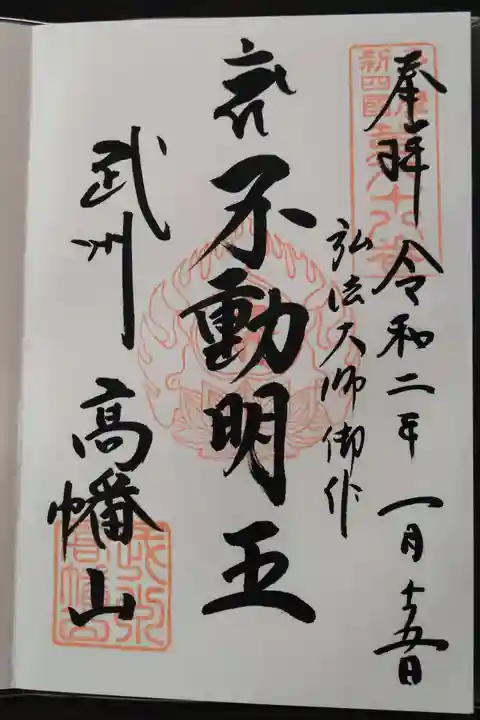 奉拝 令和二年 一月十五日
弘法大師御作
不動明王
武州 高幡山
新四国